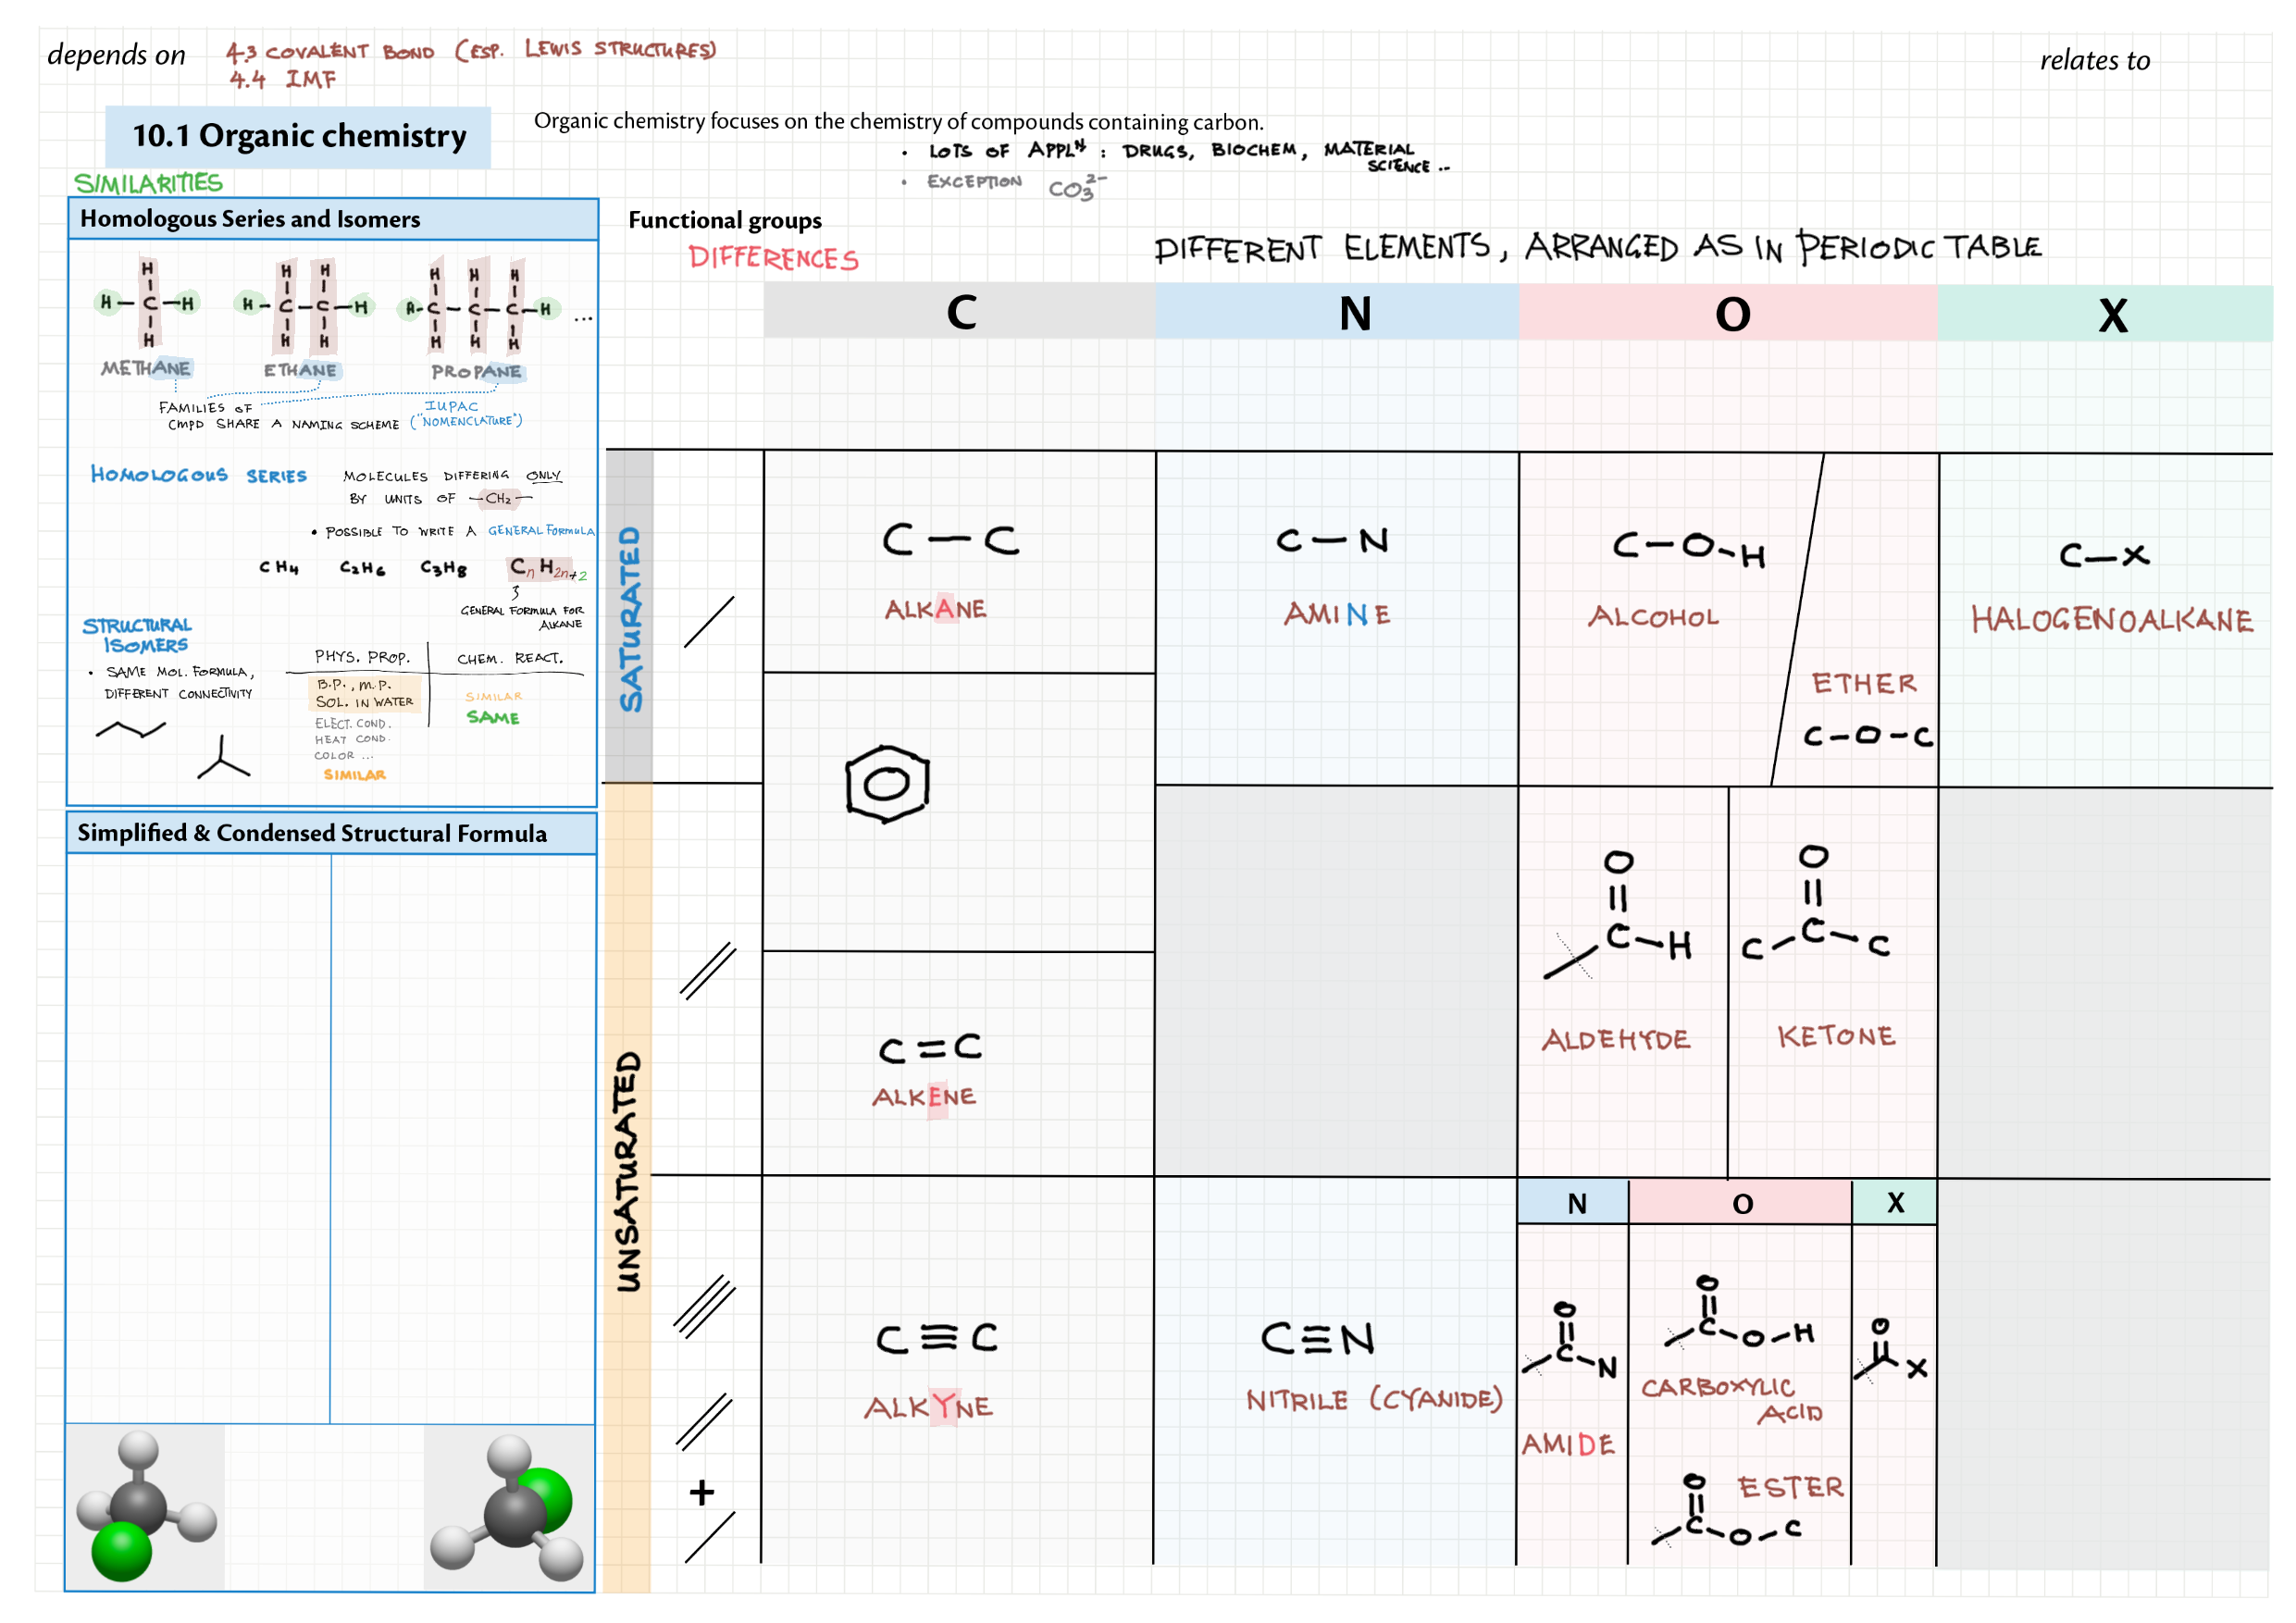 depends on
4.3 COVALENT BOND (ESP. LEWIS STRUCTURES)
4.4 IMF
relates to
10.1 Organic chemistry
Organic chemistry focuses on the chemistry of compounds containing carbon.
• LOTS OF APPLᴺ : DRUGS, BIOCHEM, MATERIAL SCIENCE ..
• EXCEPTION CO₃²⁻
SIMILARITIES
Homologous Series and Isomers
H H H H H H
H-C-H H-C-C-H H-C-C-C-H ...
H H H H H H
METHANE ETHANE PROPANE
FAMILIES OF
CMPD SHARE A NAMING SCHEME
IUPAC
("NOMENCLATURE")
HOMOLOGOUS SERIES
MOLECULES DIFFERING ONLY
BY UNITS OF -CH₂-
• POSSIBLE TO WRITE A GENERAL FORMULA
CH₄ C₂H₆ C₃H₈ CₙH₂ₙ₊₂
GENERAL FORMULA FOR
ALKANE
STRUCTURAL
ISOMERS
• SAME MOL. FORMULA,
DIFFERENT CONNECTIVITY
PHYS. PROP. CHEM. REACT.
B.P., M.P.
SOL. IN WATER
ELECT. COND.
HEAT COND.
COLOR ...
SIMILAR
SIMILAR
SAME
Simplified & Condensed Structural Formula
Functional groups
DIFFERENCES
DIFFERENT ELEMENTS, ARRANGED AS IN PERIODIC TABLE
C N O X
SATURATED
C-C
ALKANE
C-N
AMINE
C-O-H
ALCOHOL
ETHER
C-O-C
C-X
HALOGENOALKANE
UNSATURATED
C=C
ALKENE
O
C-H
ALDEHYDE
O
C C C
KETONE
C≡C
ALKYNE
C≡N
NITRILE (CYANIDE)
N O X
O
C-N
AMIDE
O
C-O-H
CARBOXYLIC
ACID
O
C-O-C
ESTER
O
X
+